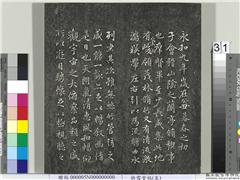 永和九年歲在癸丑暮春之初會
于會稽山陰之蘭亭脩稧事
也群賢畢至少長咸集此地
有崇山峻領茂林脩竹又有清流激
湍暎帶左右引以為流觴曲水
列坐其次雖無絲竹管弦之
盛一觴一詠亦足以暢敘幽情
是日也天朗氣清惠風和暢仰
觀宇宙之大俯察品類之盛
所以遊目騁懷足以極視聽之
31
5